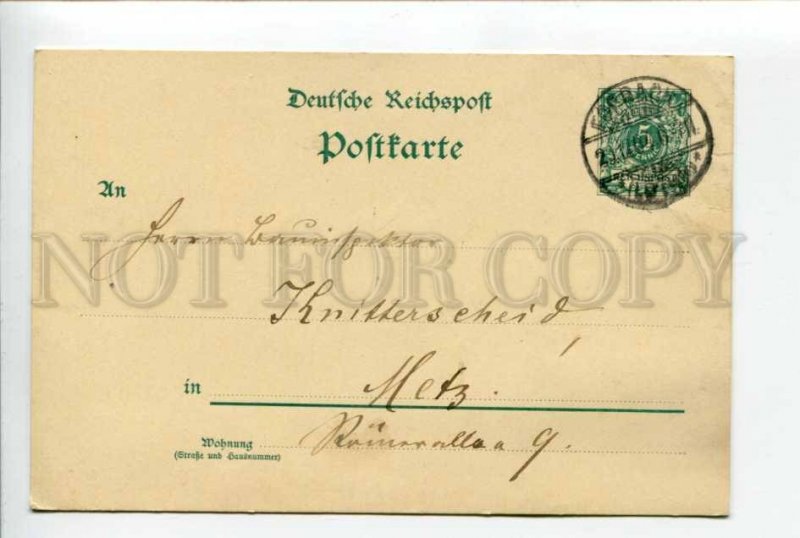 Deutsche Reichspost
Postkarte
An
Herrn Bauinspektor
NOT FOR COPY
Knitterscheid,
in Metz.
Wohnung
(Straße und Hausnummer)
Römerallee 9.
5